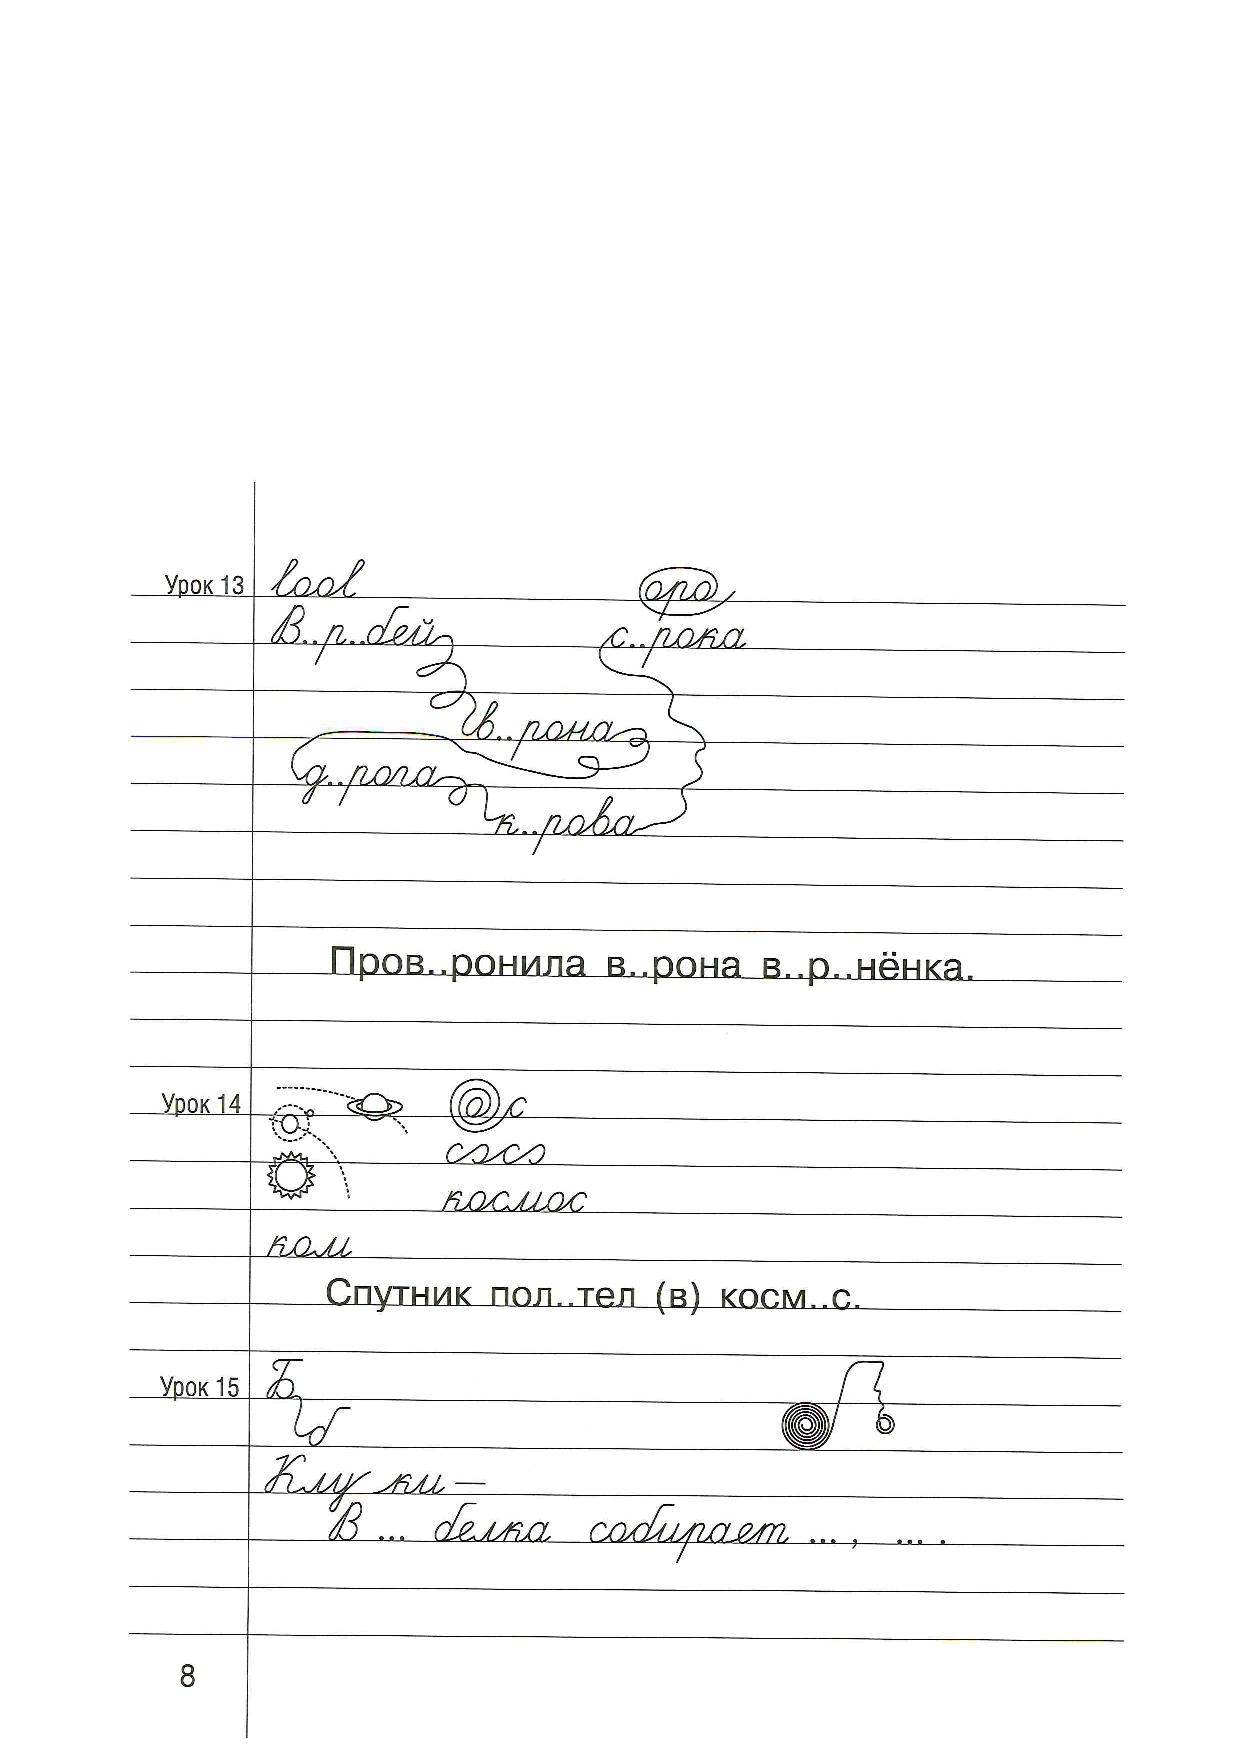 Урок 13 lool оро
В..р..бей с..рока
в..рона
д..рога
к..рова
Пров..ронила в..рона в..р..нёнка.
Урок 14 @ с
сэсэ
космос
ком
Спутник пол..тел (в) косм..с.
Урок 15 Б
б
Клу ки —
В ... белка собирает ... , ... .
8